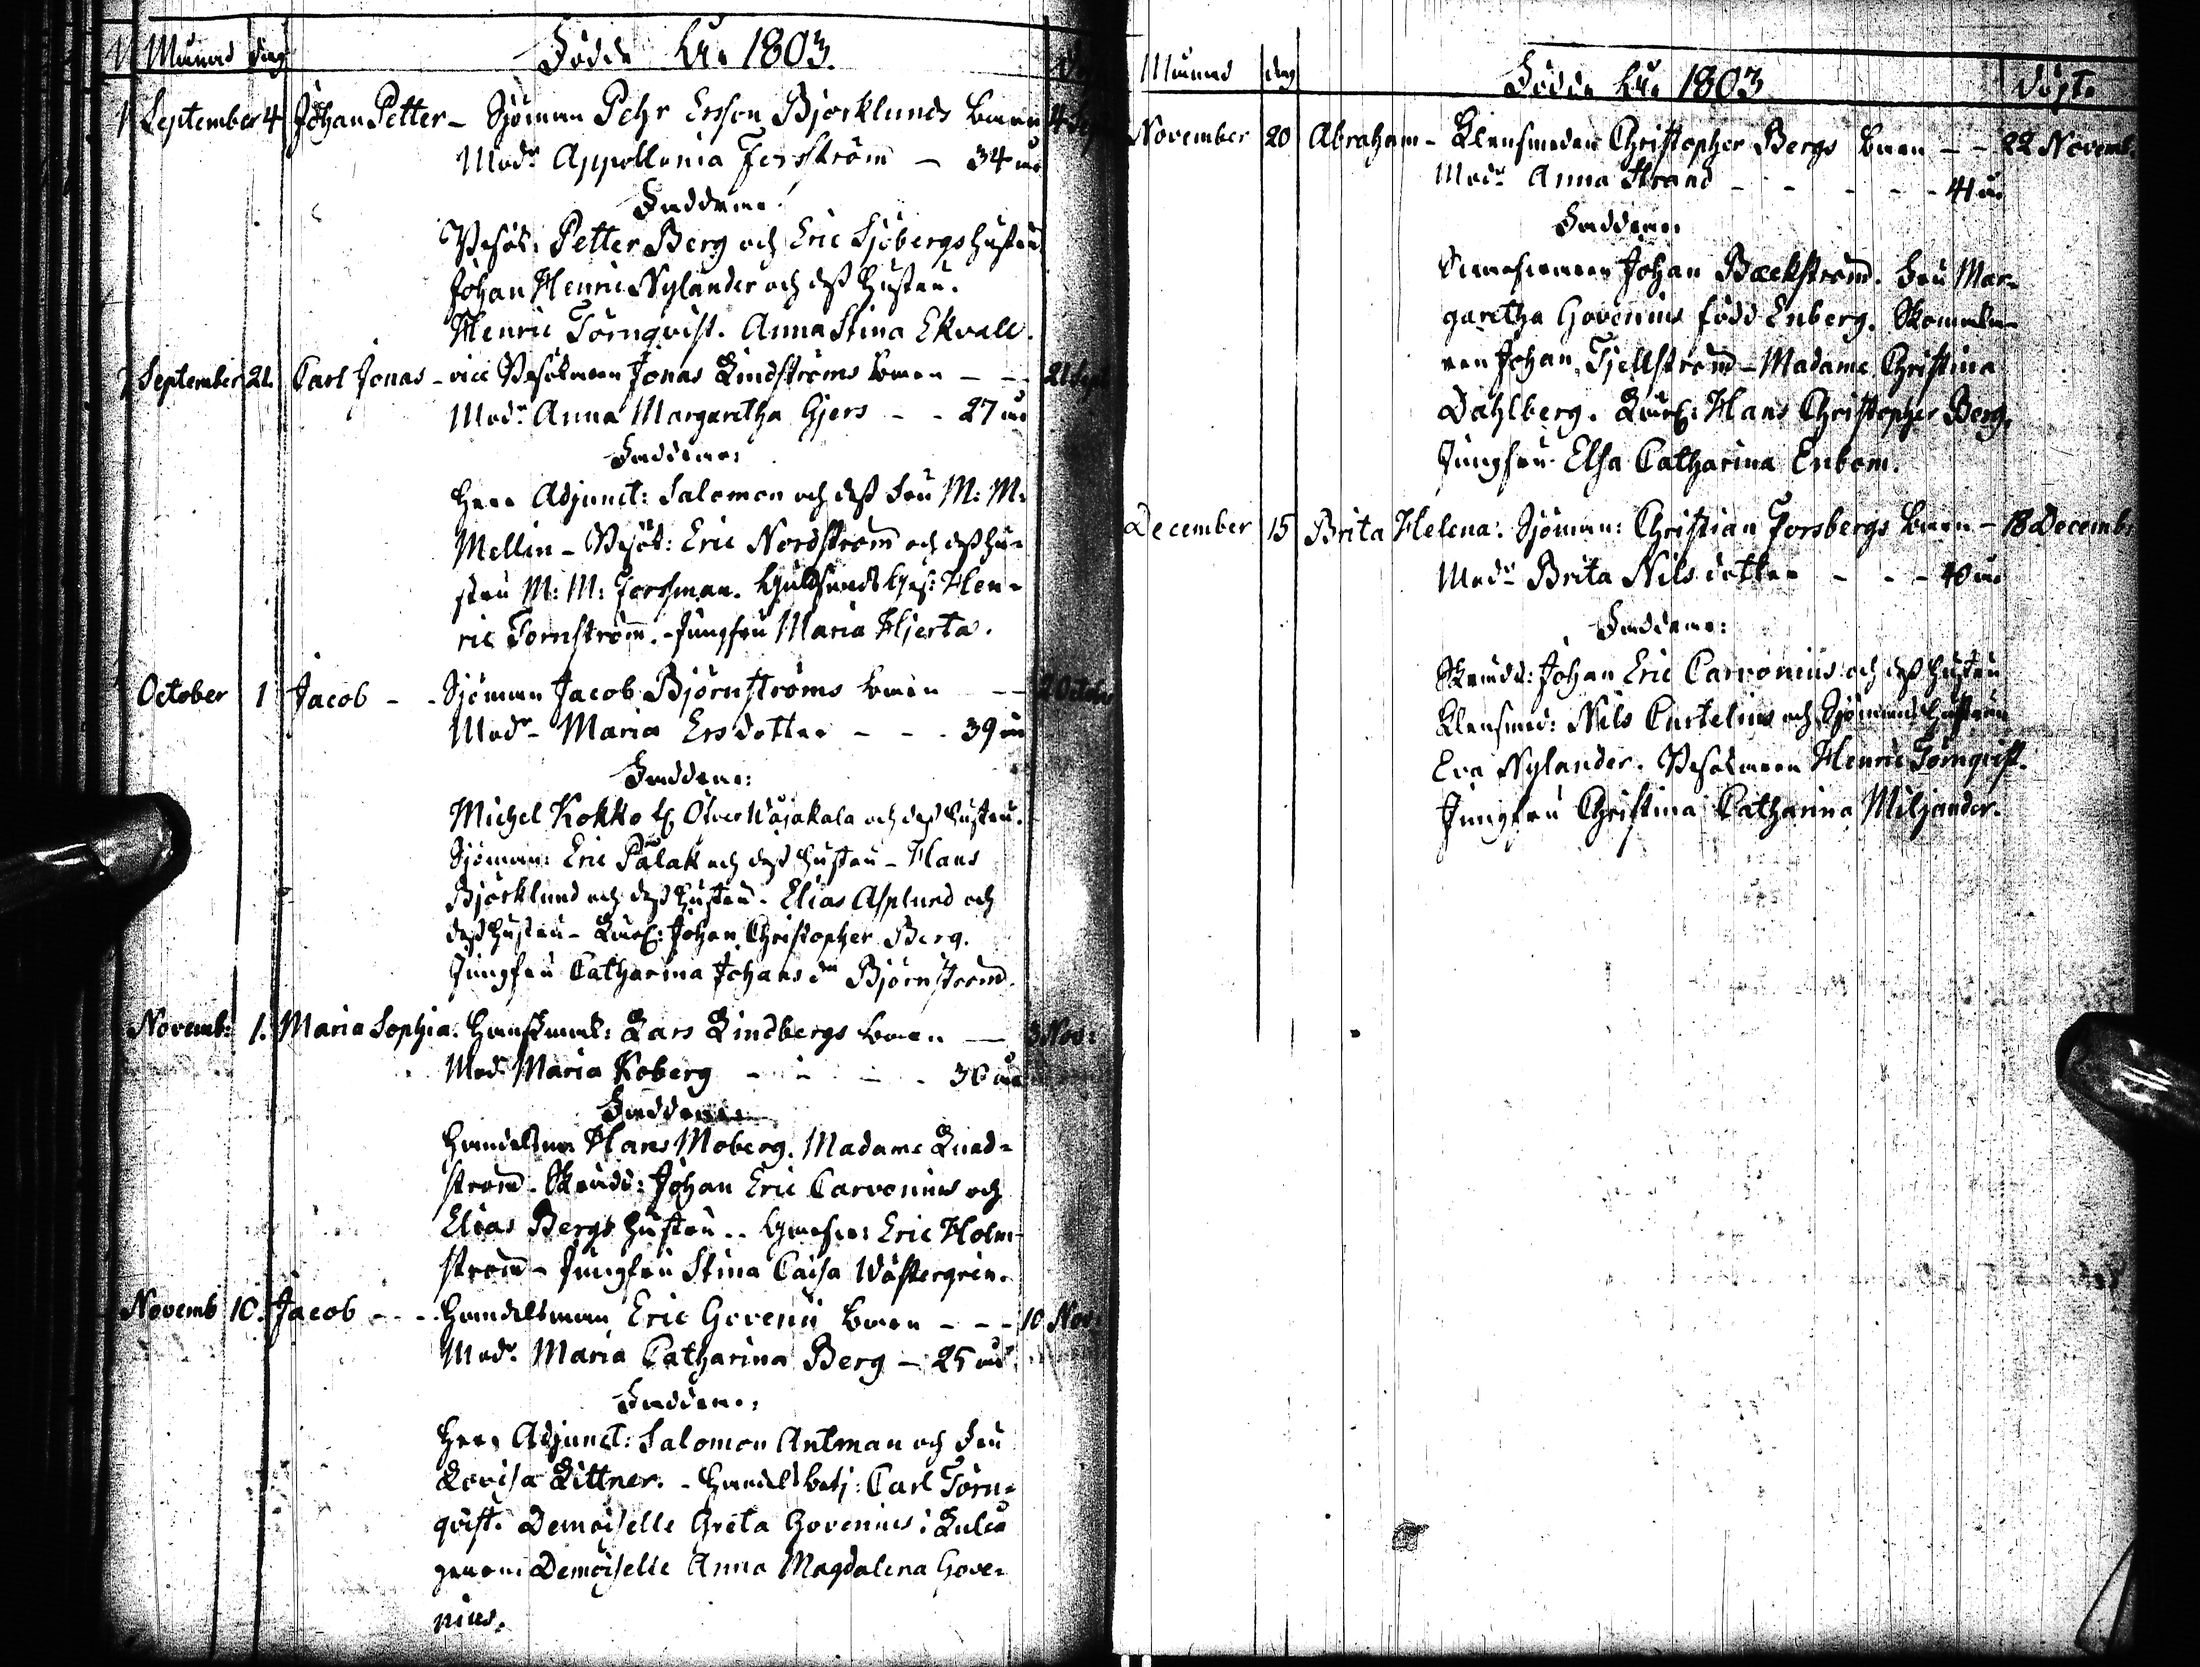 N Månad dag Födde År 1803.
1 September 4 Johan Petter - Sjöman Pehr Ersson Björklunds barn 4 Sep
Modr Appollonia Forsström - 34 år
Faddrar
Besök: Petter Berg och Eric Sjöbergs hustru
Johan Henric Nylander och dess hustru.
Henric Törnqvist. Anna Stina Ekvall.
September 21. Carl Jonas - vice Besökaren Jonas Lindströms barn - - 21 Sept
Modr Anna Margaretha Gjers - - 27 år
Faddrar:
Herr Adjunct: Salomon och dess Fru M: M:
Mellin - Besök: Eric Nordström och dess hu-
stru M: M: Forssman. Henr-
ic Tornström. - Jungfru Maria Hjerta.
October 1 Jacob - - Sjöman Jacob Björnströms barn - - 2 October
Modr - Maria Ersdotter - - - 39 år
Faddrar:
Michel Kokko fr Öfver Wojakala och dess hustru.
Sjöman: Eric Palak och dess hustru - Hans
Björklund och dess hustru - Elias Asplund och
dess hustru - Johan Christopher Berg.
Jungfru Catharina Johansdr Björnström.
Novemb: 1. Maria Sophia. Handskmak: Lars Lindbergs barn — 3 Nov:
Modr Maria Koberg - - - - 36 år
Faddrar
Handelsman Hans Moberg. Madame Lund-
ström - Skrädd: Johan Eric Carvonius och
Elias Bergs hustru - Eric Holm-
ström - Jungfru Stina Caisa Wästergren.
Novemb 10. Jacob - - - Handelsman Eric Govenii barn - - - 10 Nov:
Modr Maria Catharina Berg - 25 år
Faddrar:
Herr Adjunct: Salomon Antman och Fru
Lovisa Littner. - Handelsbetj: Carl Törn-
qvist. Demoiselle Greta Govenius i Luleå
genom Demoiselle Anna Magdalena Gove-
nius.
Månad dag Födde År 1803 döpt.
November 20 Abraham - Klensmeden Christopher Bergs barn - - 22 Novemb.
Modr Anna Strand - - - - - 41 år
Faddrar
Johan Bäckström. Fru Mar-
garetha Govenius född Enberg. Skomaka-
ren Johan Fjellström - Madame Christina
Dahlberg. Hans Christopher Berg,
Jungfru Elsa Catharina Enbom.
December 15 Brita Helena. Sjöman: Christian Forsbergs barn - 18 Decemb:
Modr Brita Nilsdotter - - - 40 år
Faddrar:
Skrädd: Johan Eric Carvonius och dess hustru
Klensmed: Nils Curtelius och Sjömans hustrun
Eva Nylander. Besökaren Henric Törnqvist.
Jungfru Christina Catharina Miljander.